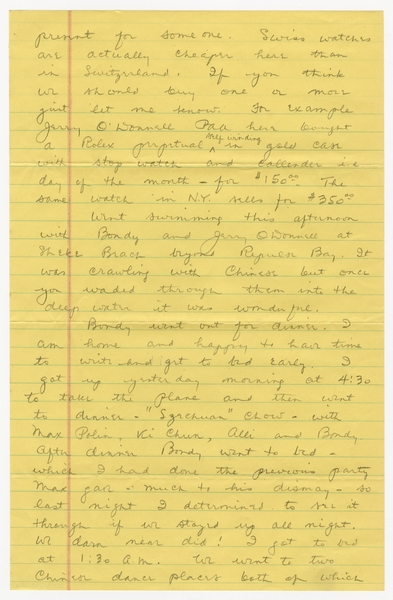 present for some one. Swiss watches
are actually cheaper here than
in Switzerland. If you think
we should buy one or more
just let me know. For example
Jerry O'Donnell Paa here bought
a Rolex perpetual self winding in gold case
with stop watch and callender i.e.
day of the month - for $150.00. The
same watch in N.Y. sells for $350.00
Went swimming this afternoon
with Bondy and Jerry O'Donnell at
Sheko Beach beyond Repulse Bay. It
was crawling with Chinese but once
you waded through them into the
deep water it was wonderful.
Bondy went out for dinner. I
am home and happy to have time
to write and get to bed early. I
got up yesterday morning at 4:30
to take the plane and then went
to dinner - "Szechuan" Chow - with
Max Polin, Ki Chun, Alli and Bondy.
After dinner Bondy went to bed -
which I had done the previous party
Max gave - much to his dismay - so
last night I determined to see it
through if we stayed up all night.
We darn near did! I got to bed
at 1:30 A.M. We went to two
Chinese dance places both of which